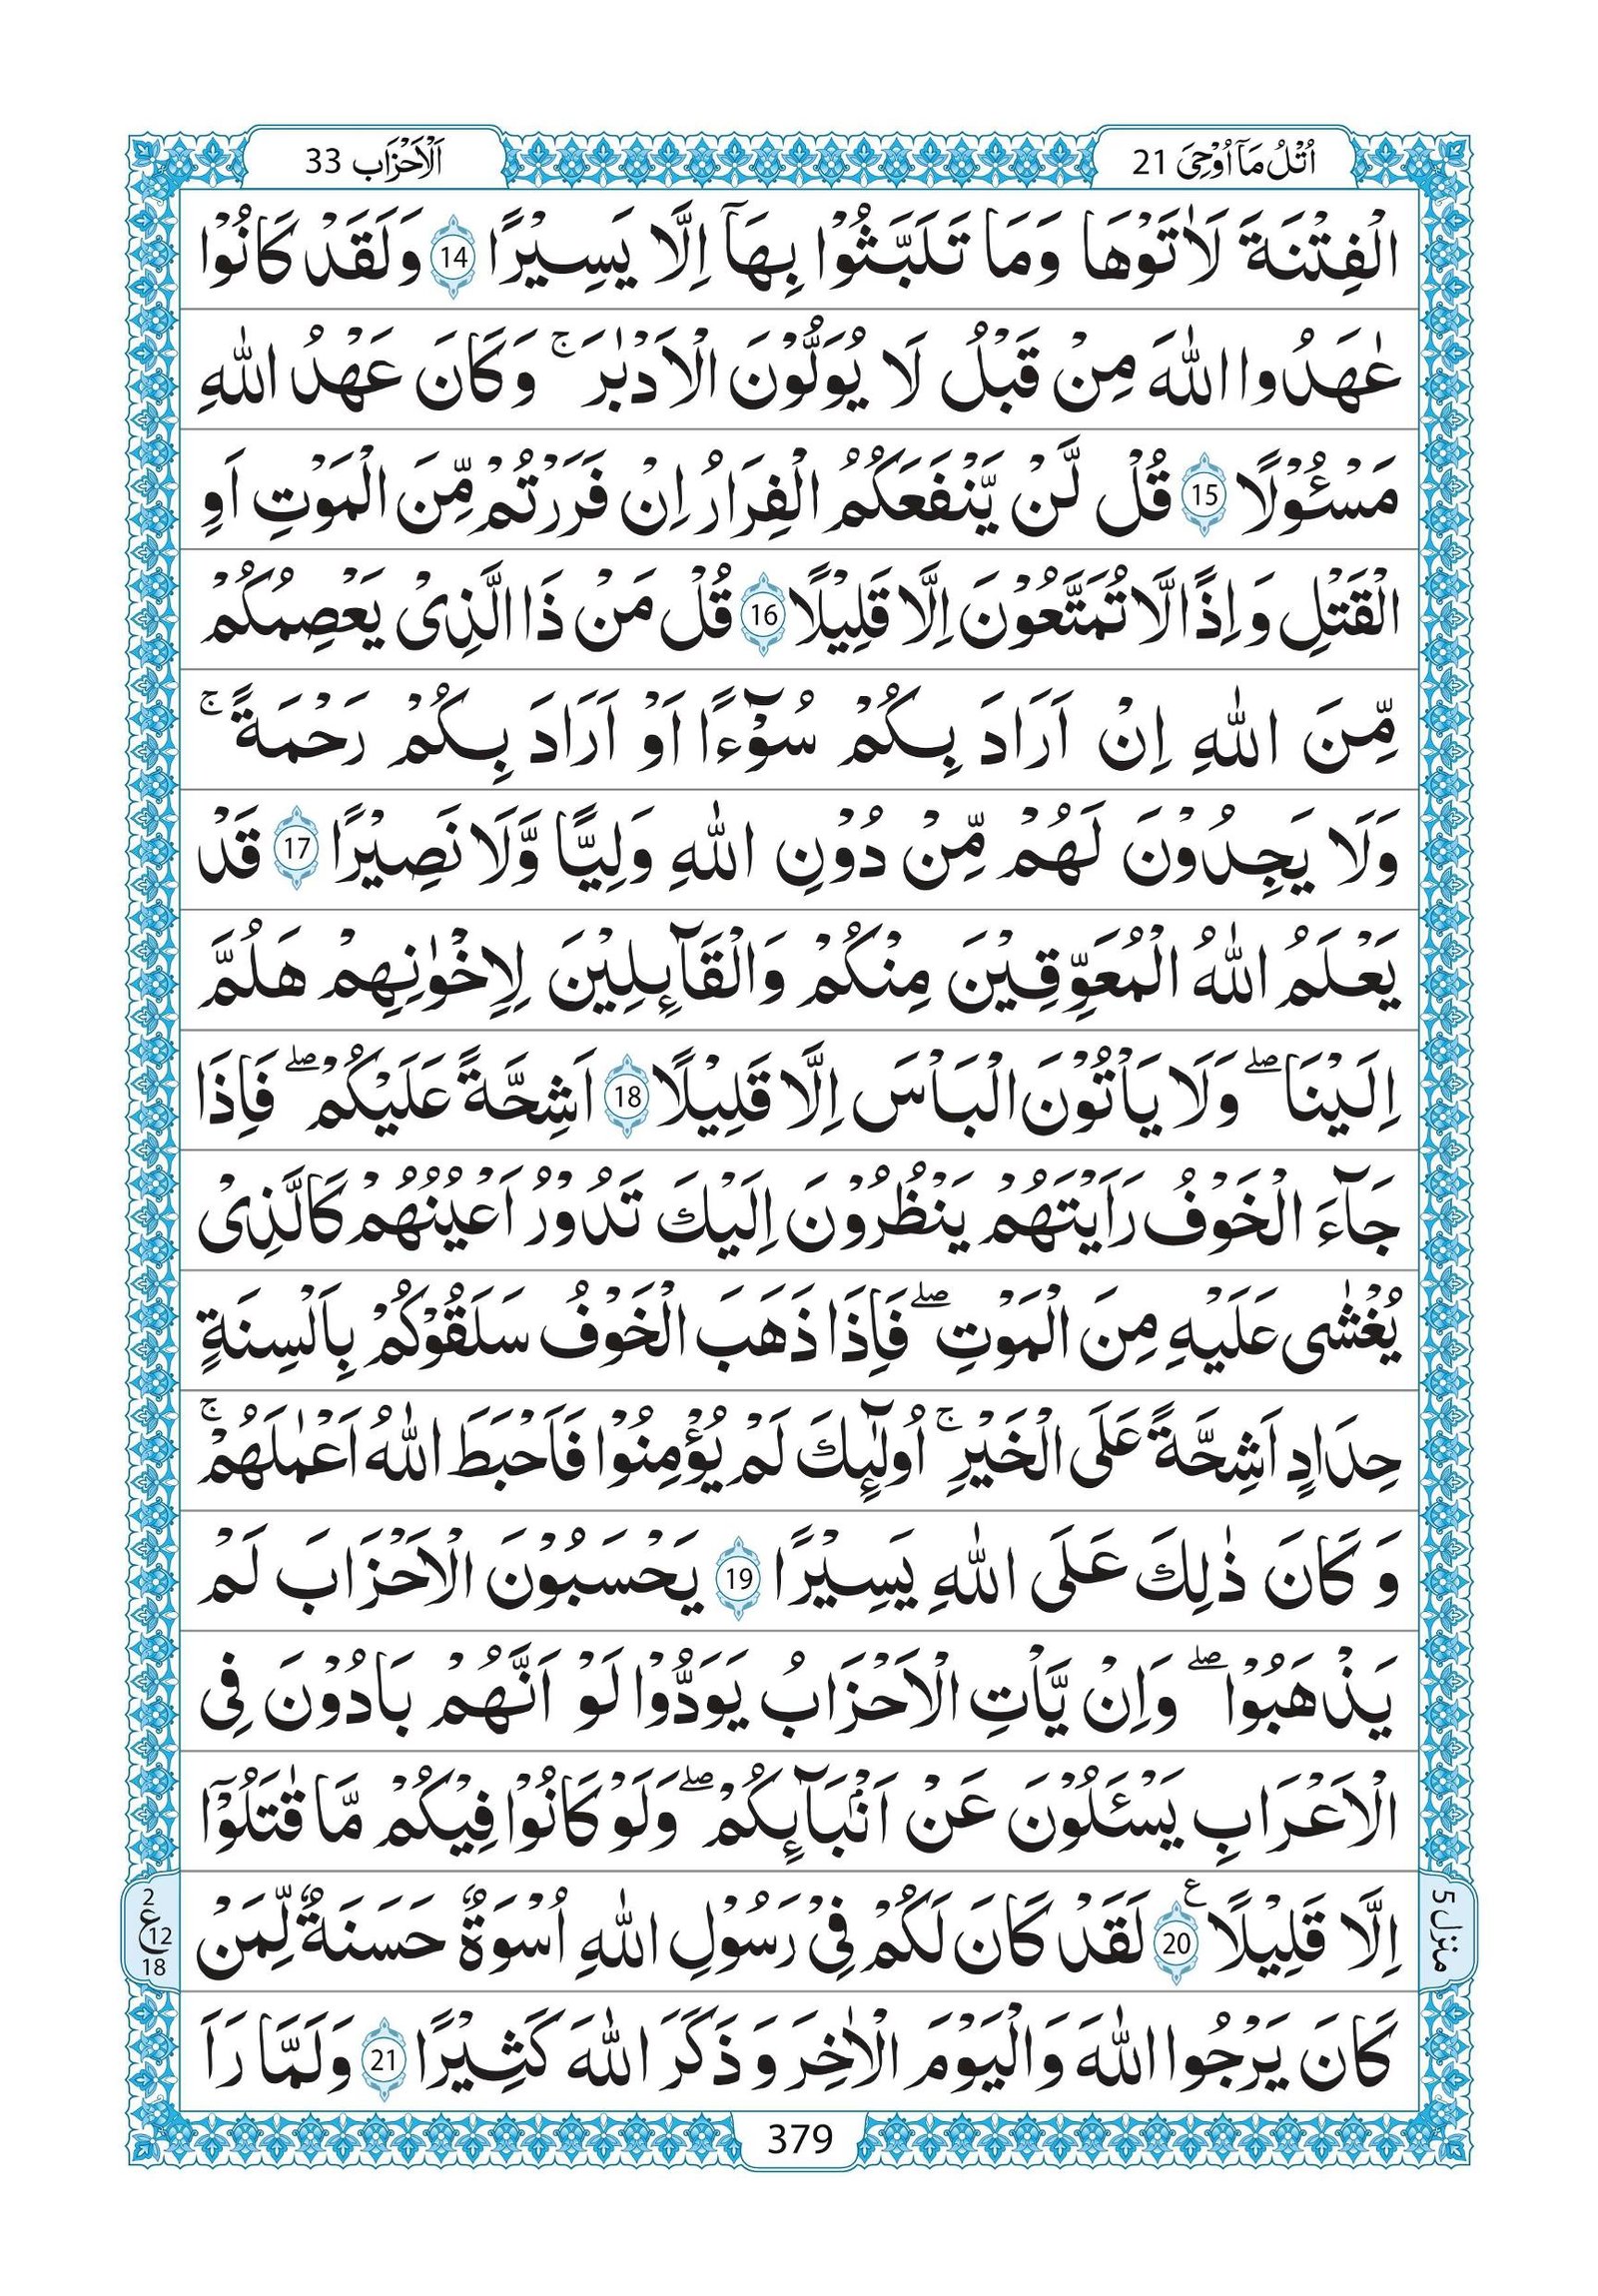 اُتْلُ مَاۤ اُوْحِیَ 21
اَلْاَحْزَاب 33
الْفِتْنَةَ لَاٰتَوْهَا وَمَا تَلَبَّثُوْا بِهَاۤ اِلَّا یَسِیْرًا 14 وَلَقَدْ كَانُوْا
عٰهَدُوا اللّٰهَ مِنْ قَبْلُ لَا یُوَلُّوْنَ الْاَدْبٰرَ ۚ وَكَانَ عَهْدُ اللّٰهِ
مَسْـُٔوْلًا 15 قُلْ لَّنْ یَّنْفَعَكُمُ الْفِرَارُ اِنْ فَرَرْتُمْ مِّنَ الْمَوْتِ اَوِ
الْقَتْلِ وَاِذًا لَّا تُمَتَّعُوْنَ اِلَّا قَلِیْلًا 16 قُلْ مَنْ ذَا الَّذِیْ یَعْصِمُكُمْ
مِّنَ اللّٰهِ اِنْ اَرَادَ بِكُمْ سُوْٓءًا اَوْ اَرَادَ بِكُمْ رَحْمَةً ۚ
وَلَا یَجِدُوْنَ لَهُمْ مِّنْ دُوْنِ اللّٰهِ وَلِیًّا وَّلَا نَصِیْرًا 17 قَدْ
یَعْلَمُ اللّٰهُ الْمُعَوِّقِیْنَ مِنْكُمْ وَالْقَآىِٕلِیْنَ لِاِخْوٰنِهِمْ هَلُمَّ
اِلَیْنَا ۖ وَلَا یَاْتُوْنَ الْبَاْسَ اِلَّا قَلِیْلًا 18 اَشِحَّةً عَلَیْكُمْ ۖ فَاِذَا
جَآءَ الْخَوْفُ رَاَیْتَهُمْ یَنْظُرُوْنَ اِلَیْكَ تَدُوْرُ اَعْیُنُهُمْ كَالَّذِیْ
یُغْشٰی عَلَیْهِ مِنَ الْمَوْتِ ۖ فَاِذَا ذَهَبَ الْخَوْفُ سَلَقُوْكُمْ بِاَلْسِنَةٍ
حِدَادٍ اَشِحَّةً عَلَی الْخَیْرِ ۚ اُولٰٓىِٕكَ لَمْ یُؤْمِنُوْا فَاَحْبَطَ اللّٰهُ اَعْمٰلَهُمْ ۚ
وَكَانَ ذٰلِكَ عَلَی اللّٰهِ یَسِیْرًا 19 یَحْسَبُوْنَ الْاَحْزَابَ لَمْ
یَذْهَبُوْا ۖ وَاِنْ یَّاْتِ الْاَحْزَابُ یَوَدُّوْا لَوْ اَنَّهُمْ بَادُوْنَ فِی
الْاَعْرَابِ یَسْـَٔلُوْنَ عَنْ اَنْۢبَآىِٕكُمْ ۖ وَلَوْ كَانُوْا فِیْكُمْ مَّا قٰتَلُوْۤا
اِلَّا قَلِیْلًا 20 ع لَقَدْ كَانَ لَكُمْ فِیْ رَسُوْلِ اللّٰهِ اُسْوَةٌ حَسَنَةٌ لِّمَنْ
كَانَ یَرْجُوا اللّٰهَ وَالْیَوْمَ الْاٰخِرَ وَذَكَرَ اللّٰهَ كَثِیْرًا 21 وَلَمَّا رَاَ
منزل 5
2
ع 12
18
379